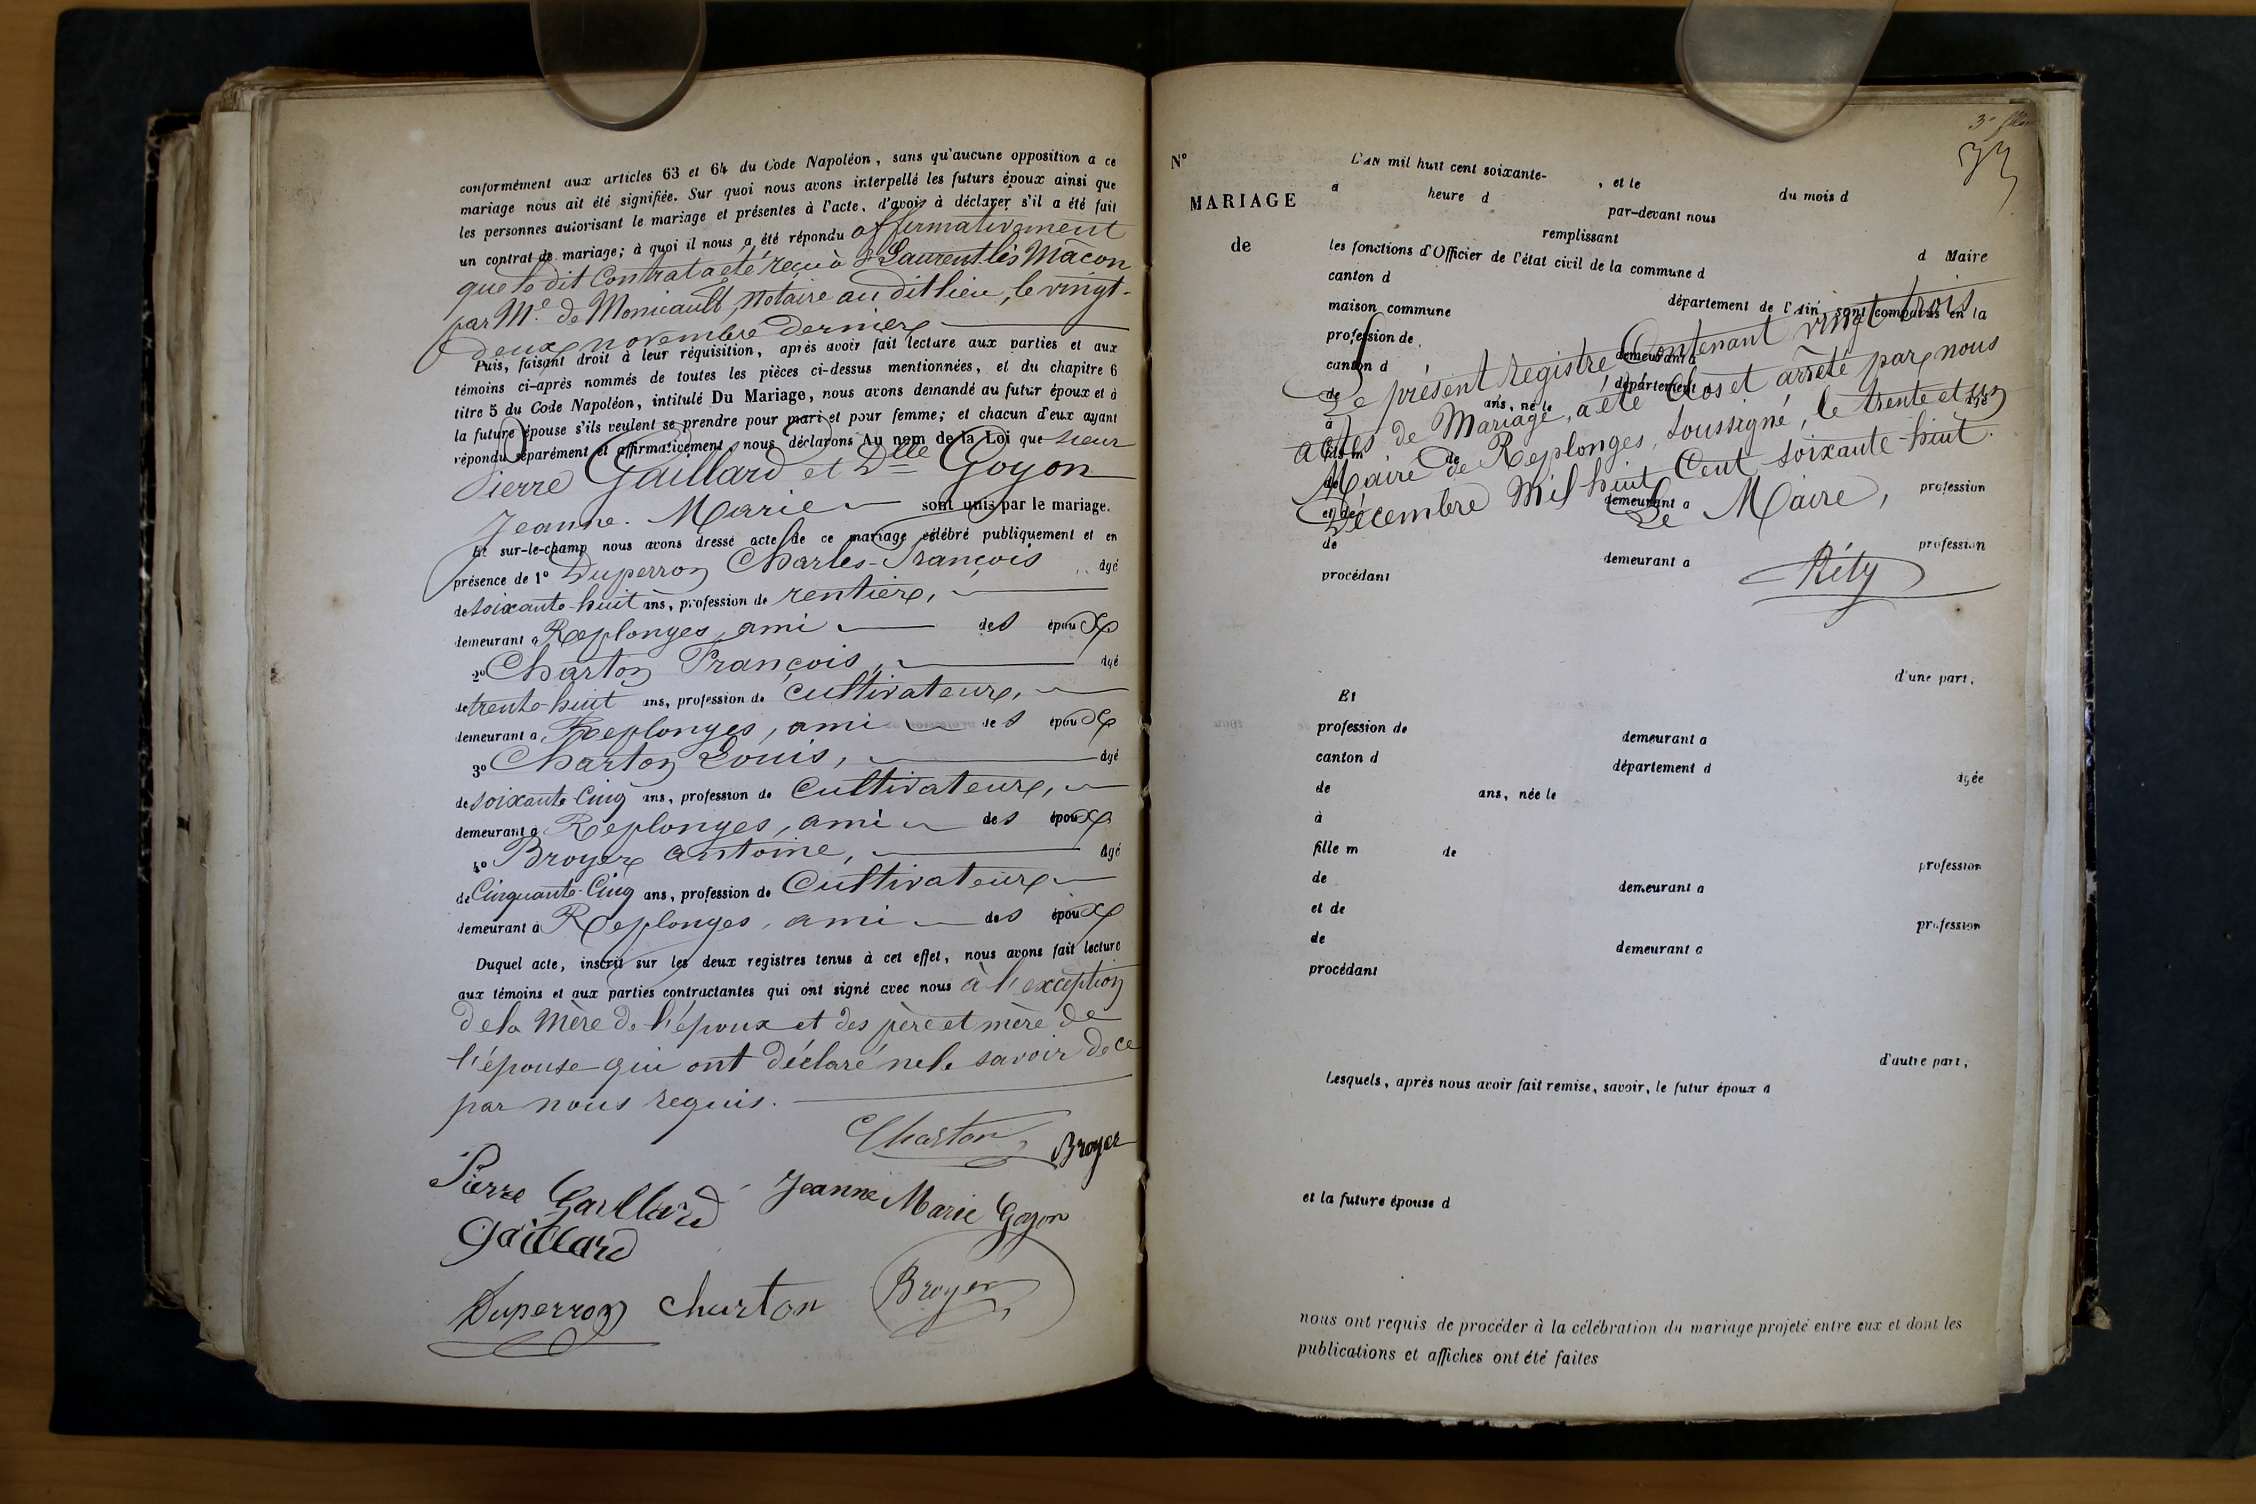 conformément aux articles 63 et 64 du Code Napoléon, sans qu'aucune opposition à ce
mariage nous ait été signifiée. Sur quoi nous avons interpellé les futurs époux ainsi que
les personnes autorisant le mariage et présentes à l'acte, d'avoir à déclarer s'il a été fait
un contrat de mariage; à quoi il nous a été répondu affirmativement
que le dit Contrat a été reçu à St Laurent-lès Mâcon
par Me de Monicault, Notaire au dit lieu, le vingt-
deux novembre dernier
Puis, faisant droit à leur réquisition, après avoir fait lecture aux parties et aux
témoins ci-après nommés de toutes les pièces ci-dessus mentionnées, et du chapitre 6
titre 5 du Code Napoléon, intitulé Du Mariage, nous avons demandé au futur époux et à
la future épouse s'ils veulent se prendre pour mari et pour femme; et chacun d'eux ayant
répondu séparément et affirmativement, nous déclarons Au nom de la Loi que sieur
Pierre Gaillard et Dlle Goyon
Jeanne-Marie sont unis par le mariage.
Et sur-le-champ nous avons dressé acte de ce mariage célébré publiquement et en
présence de 1° Duperron Charles-François âgé
de soixante-huit ans, profession de rentier,
demeurant à Replonges, ami des époux
2° Charton François, âgé
de trente-huit ans, profession de Cultivateur,
demeurant à Replonges, ami des époux
3° Charton Louis, âgé
de soixante Cinq ans, profession de Cultivateur,
demeurant à Replonges, ami des époux
4° Broyer Antoine, âgé
de Cinquante-Cinq ans, profession de Cultivateur
demeurant à Replonges, ami des époux
Duquel acte, inscrit sur les deux registres tenus à cet effet, nous avons fait lecture
aux témoins et aux parties contractantes qui ont signé avec nous à l'exception
de la Mère de l'époux et des père et mère de
l'épouse qui ont déclaré ne le savoir de ce
par nous requis.
Charton Broyer
Pierre Gaillard Jeanne Marie Goyon
Gaillard
Duperron Charton Broyer
N°
MARIAGE
de
L'AN mil huit cent soixante- , et le du mois d
à heure d par-devant nous
remplissant
les fonctions d'Officier de l'état civil de la commune d d Maire
canton d département de l'Ain, sont comparus en la
maison commune
profession de demeurant à
canton d département d
de ans, né le âgé
à
fils m de
de demeurant à profession
et de
de demeurant à profession
procédant
Le présent registre Contenant vingt trois
actes de Mariage, a été Clos et arrêté par nous
Maire de Replonges, soussigné, le trente et un
Décembre Mil huit Cent soixante-huit.
Le Maire,
Réty
d'une part,
Et
profession de demeurant à
canton d département d
de ans, née le âgée
à
fille m de
de demeurant à profession
et de
de demeurant à profession
procédant
d'autre part,
Lesquels, après nous avoir fait remise, savoir, le futur époux d
et la future épouse d
nous ont requis de procéder à la célébration du mariage projeté entre eux et dont les
publications et affiches ont été faites